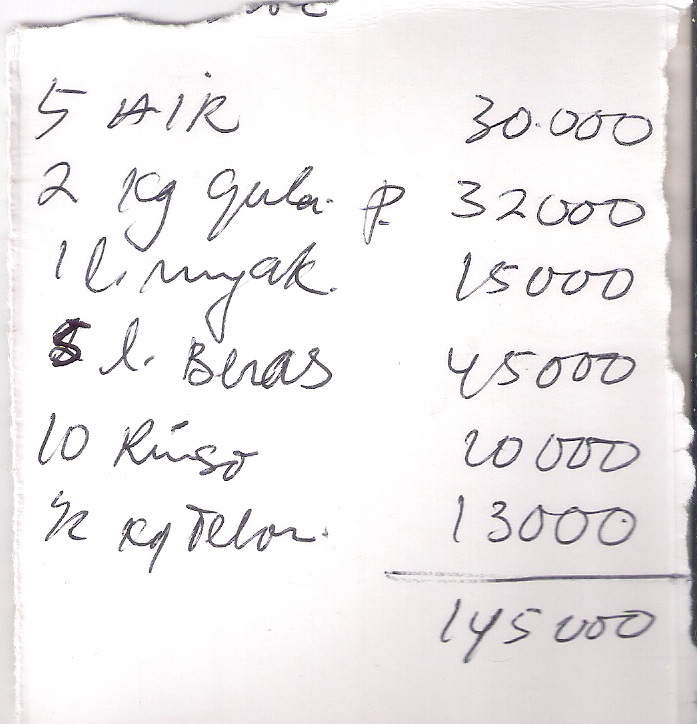 5 AIR 30.000
2 Kg Gula P. 32000
1 l. minyak. 15000
5 l. Beras 45000
10 Rinso 20000
1/2 Kg Telor. 13000
145000